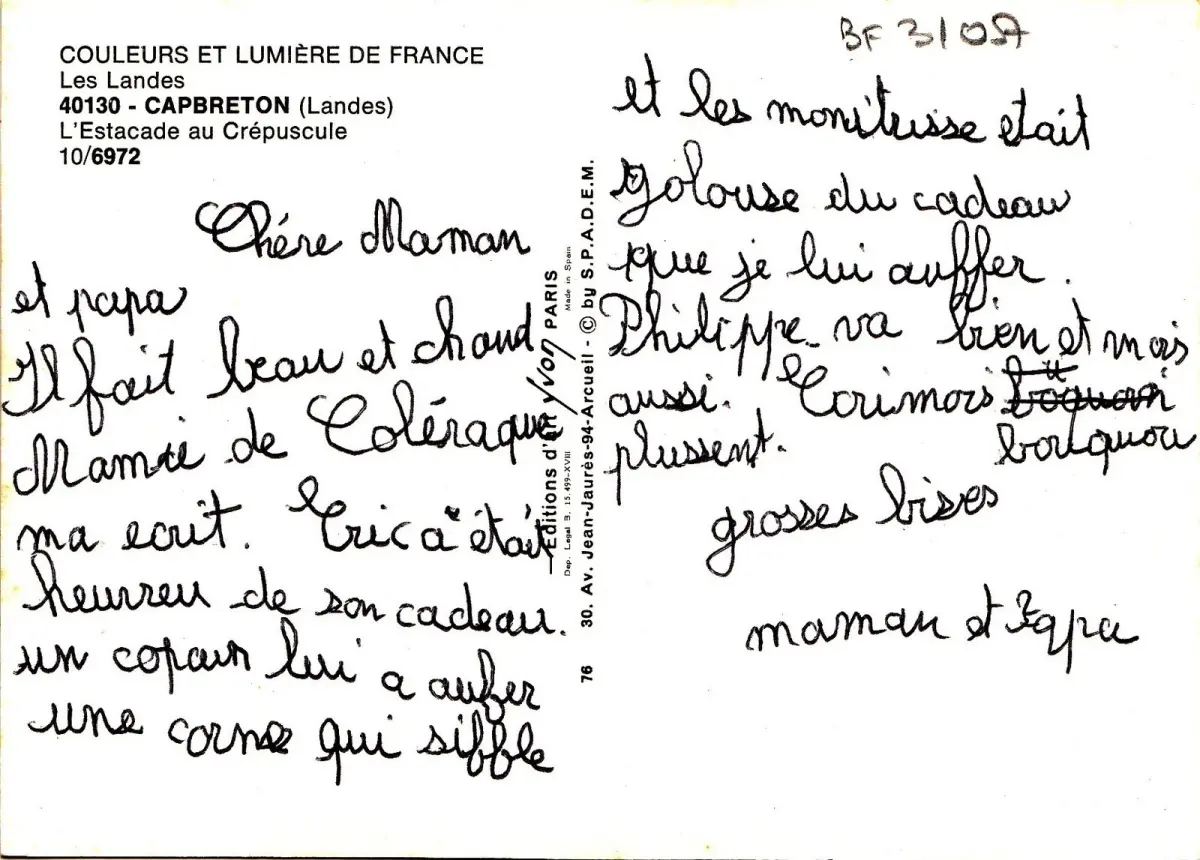 COULEURS ET LUMIÈRE DE FRANCE
Les Landes
40130 - CAPBRETON (Landes)
L'Estacade au Crépuscule
10/6972
BF 31087
Chére Maman
et papa
Il fait beau et chaud
Mamie de Coléraque
ma ecrit. Eric a était
heurreu de son cadeau.
un copain lui a aufer
une corne qui siffle
—Editions d'art YVON PARIS
Dep. Legal B. 15.499-XVIII Made in Spain
76 30. Av. Jean-Jaurès-94-Arcueil - © by S.P.A.D.E.M.
et les monitrisse etait
golouse du cadeau
que je lui auffer.
Philippe va bien et mois
aussi. Ecrimois
plussent. bouquou
grosses bises
maman et Papa